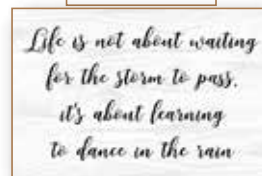 Life is not about waiting
for the storm to pass,
it's about learning
to dance in the rain